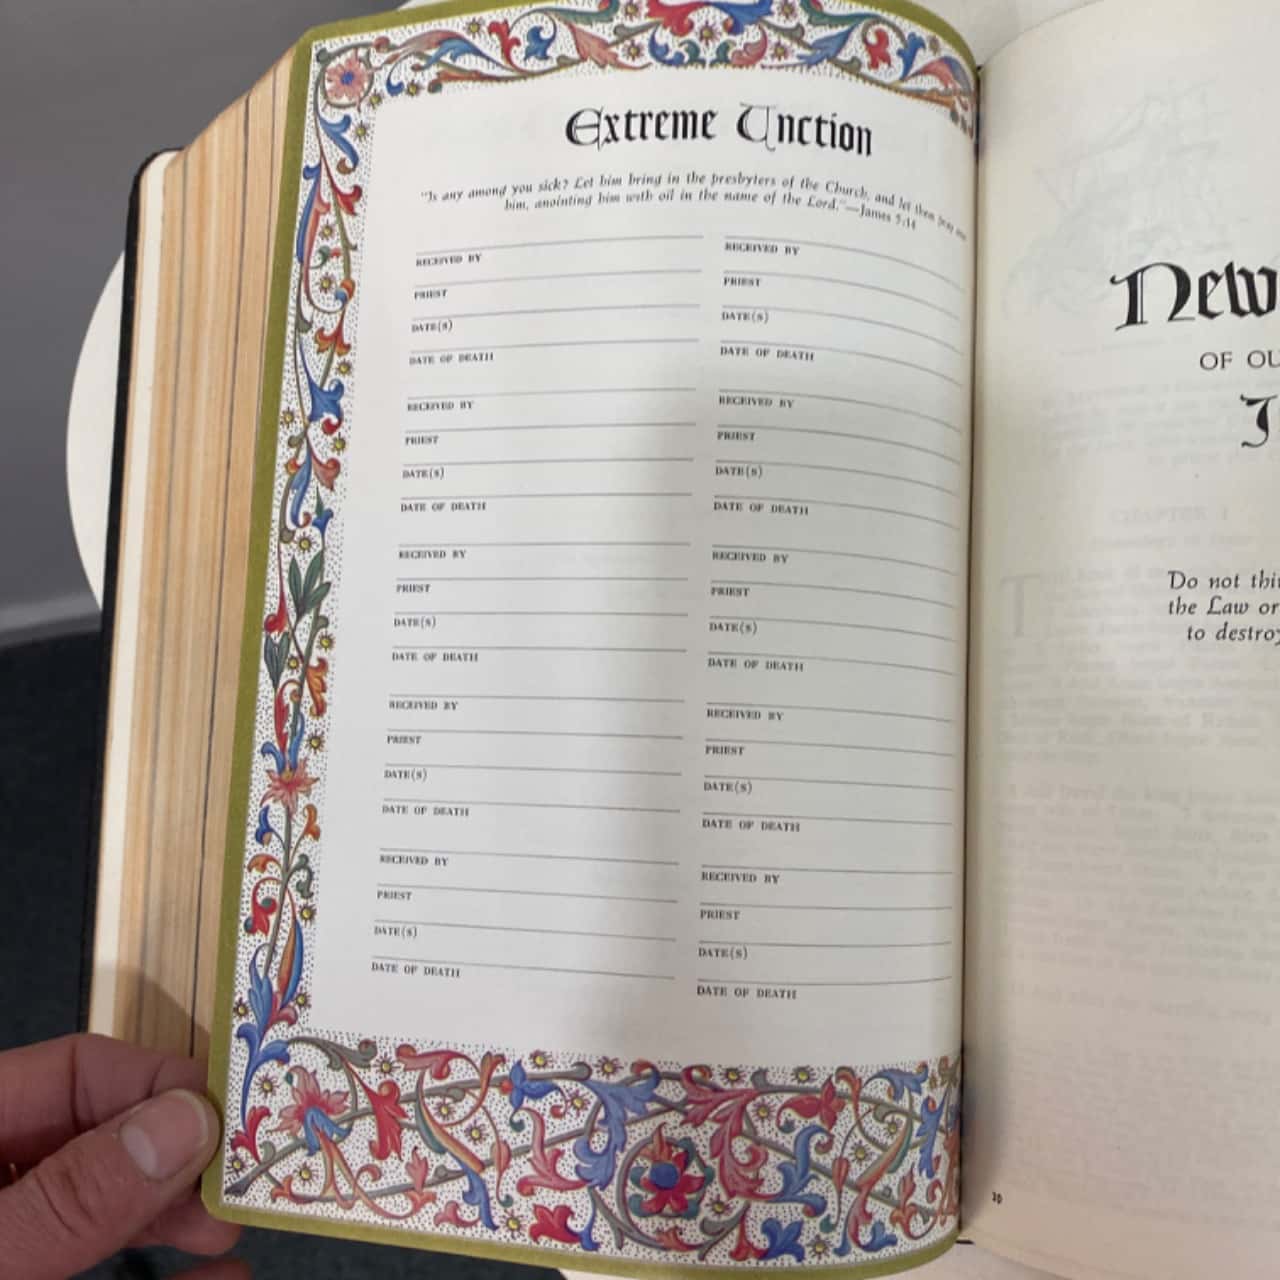 Extreme Unction
"Is any among you sick? Let him bring in the presbyters of the Church, and let them pray over
him, anointing him with oil in the name of the Lord."—James 5:14
RECEIVED BY
PRIEST
DATE(S)
DATE OF DEATH
RECEIVED BY
PRIEST
DATE(S)
DATE OF DEATH
RECEIVED BY
PRIEST
DATE(S)
DATE OF DEATH
RECEIVED BY
PRIEST
DATE(S)
DATE OF DEATH
RECEIVED BY
PRIEST
DATE(S)
DATE OF DEATH
RECEIVED BY
PRIEST
DATE(S)
DATE OF DEATH
RECEIVED BY
PRIEST
DATE(S)
DATE OF DEATH
RECEIVED BY
PRIEST
DATE(S)
DATE OF DEATH
RECEIVED BY
PRIEST
DATE(S)
DATE OF DEATH
RECEIVED BY
PRIEST
DATE(S)
DATE OF DEATH
New
OF OU
J
Do not thi
the Law or
to destroy